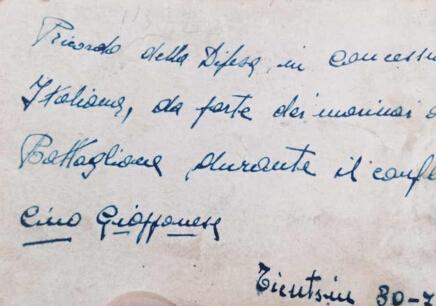 Ricordo della Difesa in concessi
Italiana, da parte dei marinai d
Battaglione durante il confl
Cino Giapponese
Tientsin 30-